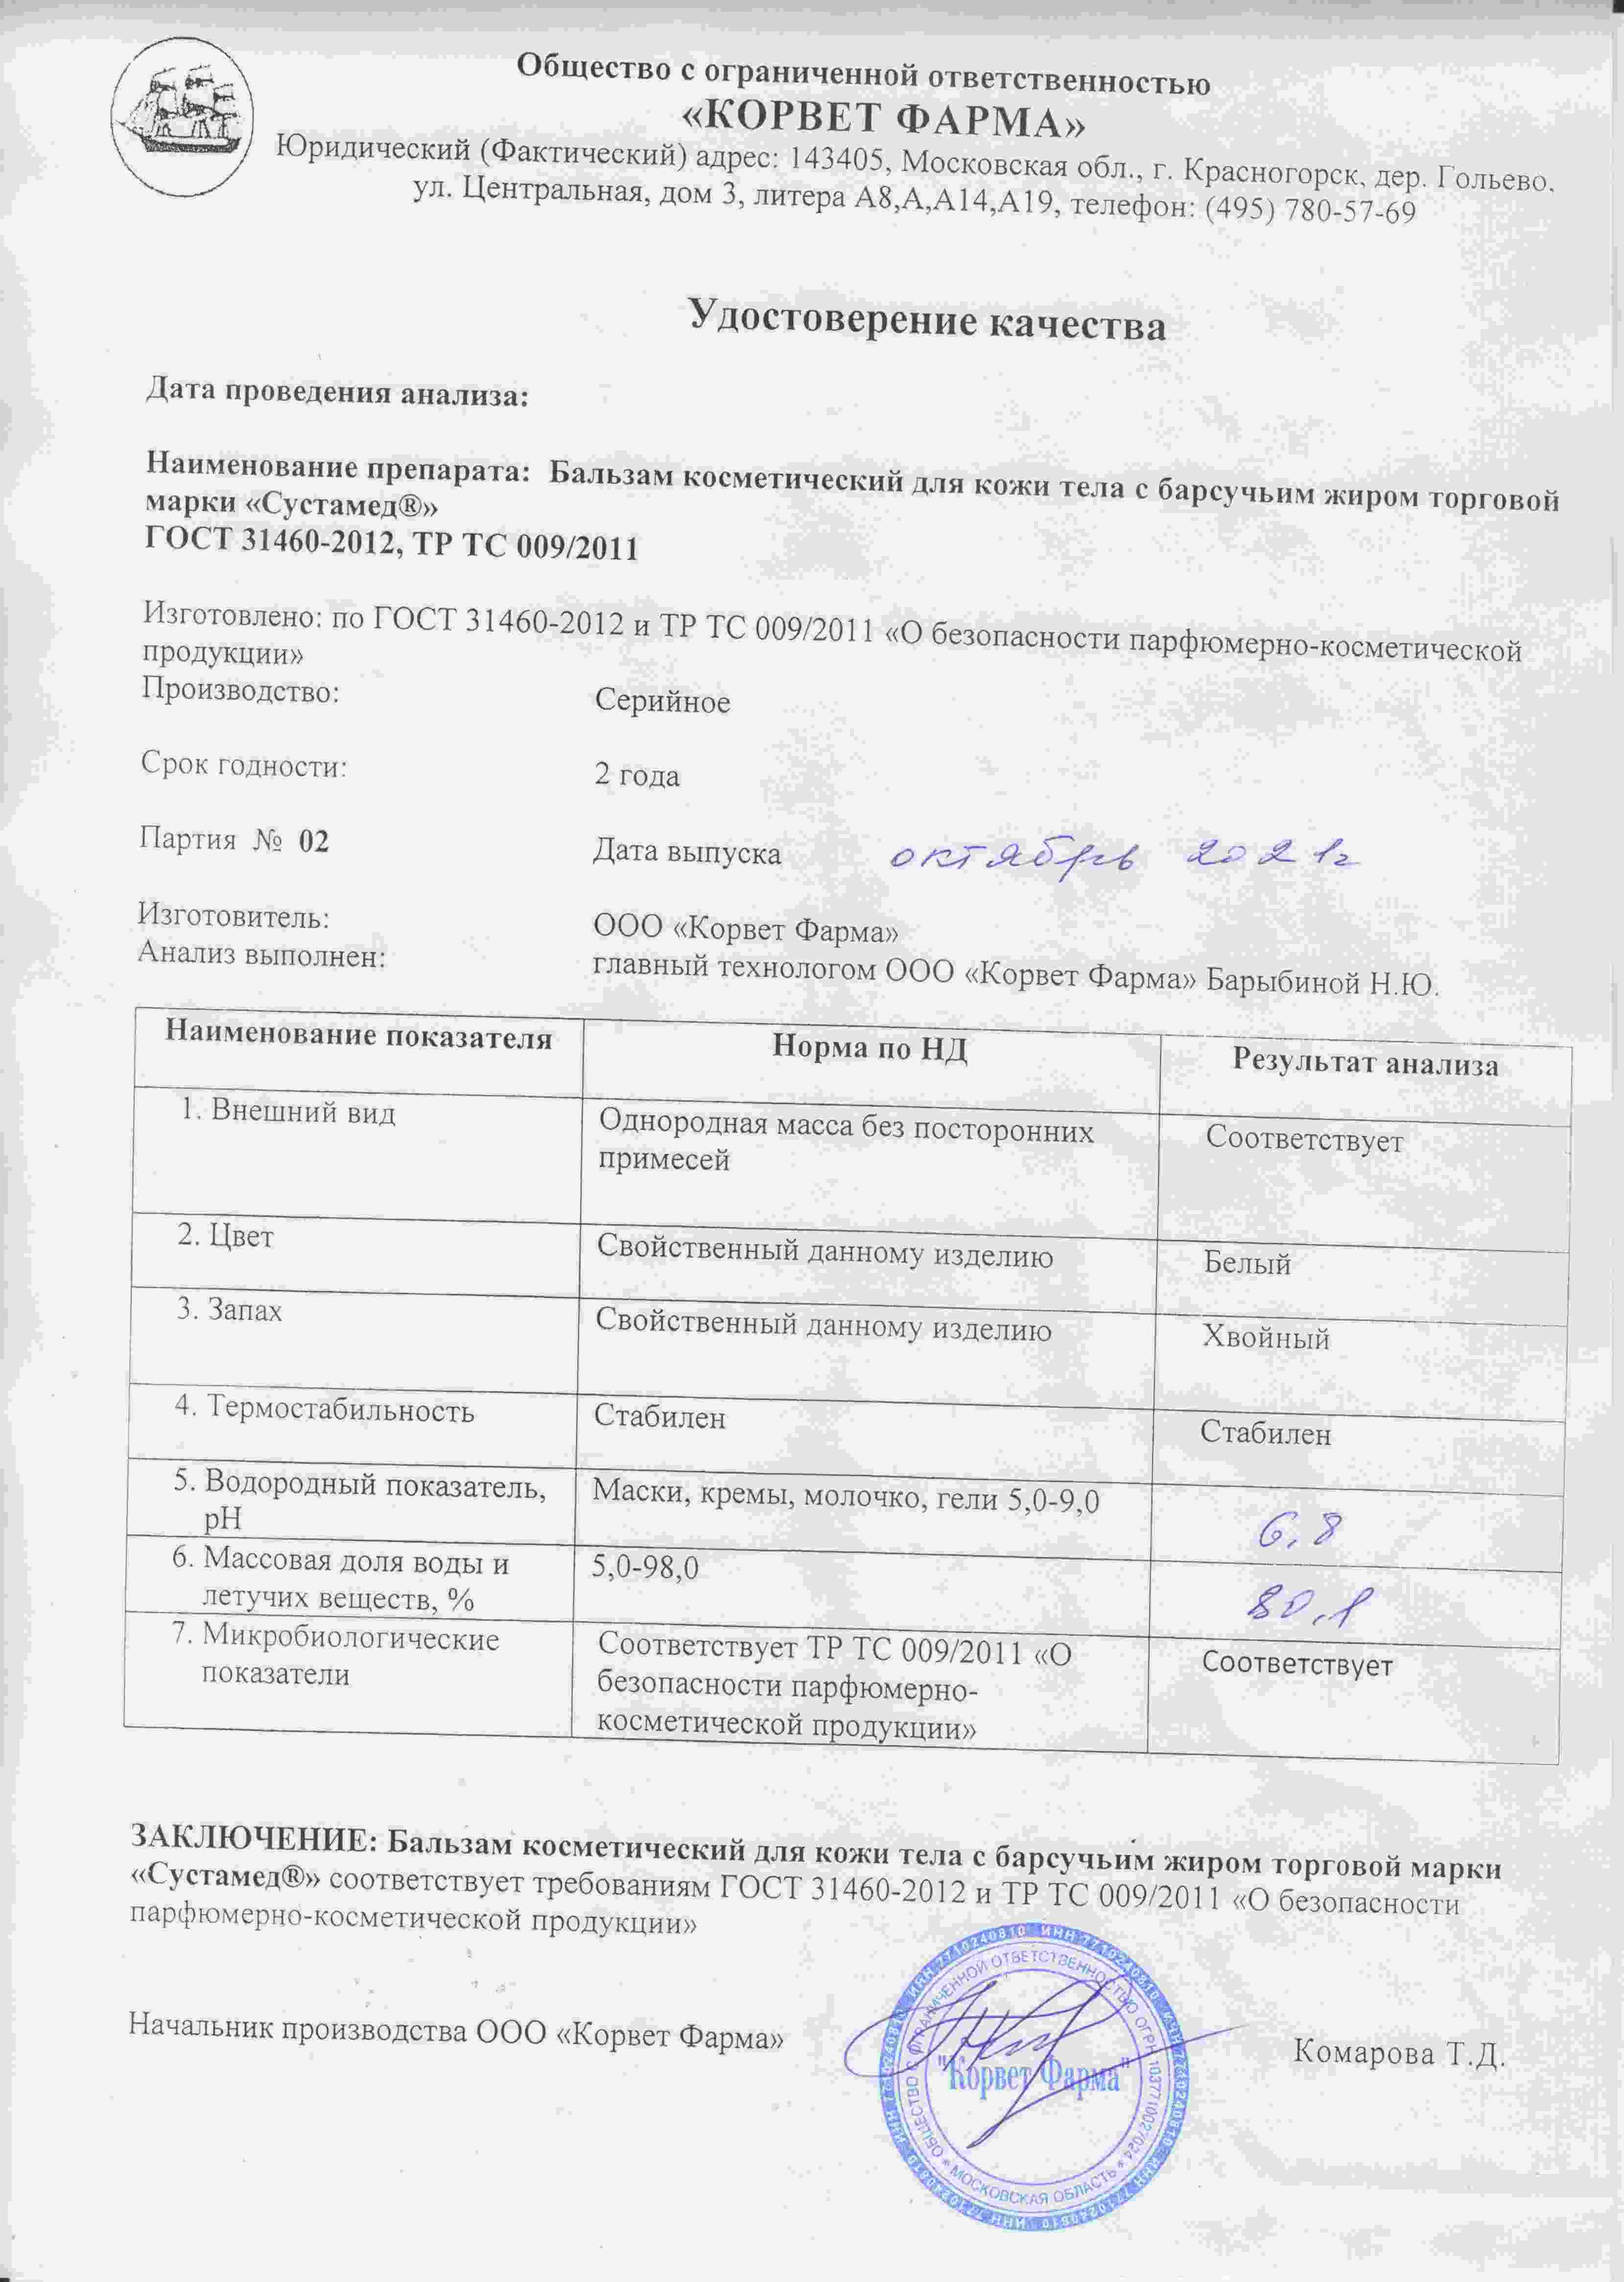 Общество с ограниченной ответственностью
«КОРВЕТ ФАРМА»
Юридический (Фактический) адрес: 143405, Московская обл., г. Красногорск, дер. Гольево,
ул. Центральная, дом 3, литера А8,А,А14,А19, телефон: (495) 780-57-69
Удостоверение качества
Дата проведения анализа:
Наименование препарата: Бальзам косметический для кожи тела с барсучьим жиром торговой
марки «Сустамед®»
ГОСТ 31460-2012, ТР ТС 009/2011
Изготовлено: по ГОСТ 31460-2012 и ТР ТС 009/2011 «О безопасности парфюмерно-косметической
продукции»
Производство: Серийное
Срок годности: 2 года
Партия № 02 Дата выпуска октябрь 2021г
Изготовитель: ООО «Корвет Фарма»
Анализ выполнен: главный технологом ООО «Корвет Фарма» Барыбиной Н.Ю.
Наименование показателя Норма по НД Результат анализа
1. Внешний вид Однородная масса без посторонних Соответствует
примесей
2. Цвет Свойственный данному изделию Белый
3. Запах Свойственный данному изделию Хвойный
4. Термостабильность Стабилен Стабилен
5. Водородный показатель, Маски, кремы, молочко, гели 5,0-9,0 6,8
pH
6. Массовая доля воды и 5,0-98,0 80,1
летучих веществ, %
7. Микробиологические Соответствует ТР ТС 009/2011 «О Соответствует
показатели безопасности парфюмерно-
косметической продукции»
ЗАКЛЮЧЕНИЕ: Бальзам косметический для кожи тела с барсучьим жиром торговой марки
«Сустамед®» соответствует требованиям ГОСТ 31460-2012 и ТР ТС 009/2011 «О безопасности
парфюмерно-косметической продукции»
Начальник производства ООО «Корвет Фарма» Комарова Т.Д.
ИНН 7710240810 ИНН 7710240810 ИНН 7710240810 ИНН 7710240810 ИНН 7710240810 ИНН 7710240810
ОБЩЕСТВО С ОГРАНИЧЕННОЙ ОТВЕТСТВЕННОСТЬЮ ОГРН 1037710027024
* МОСКОВСКАЯ ОБЛАСТЬ *
"Корвет Фарма"